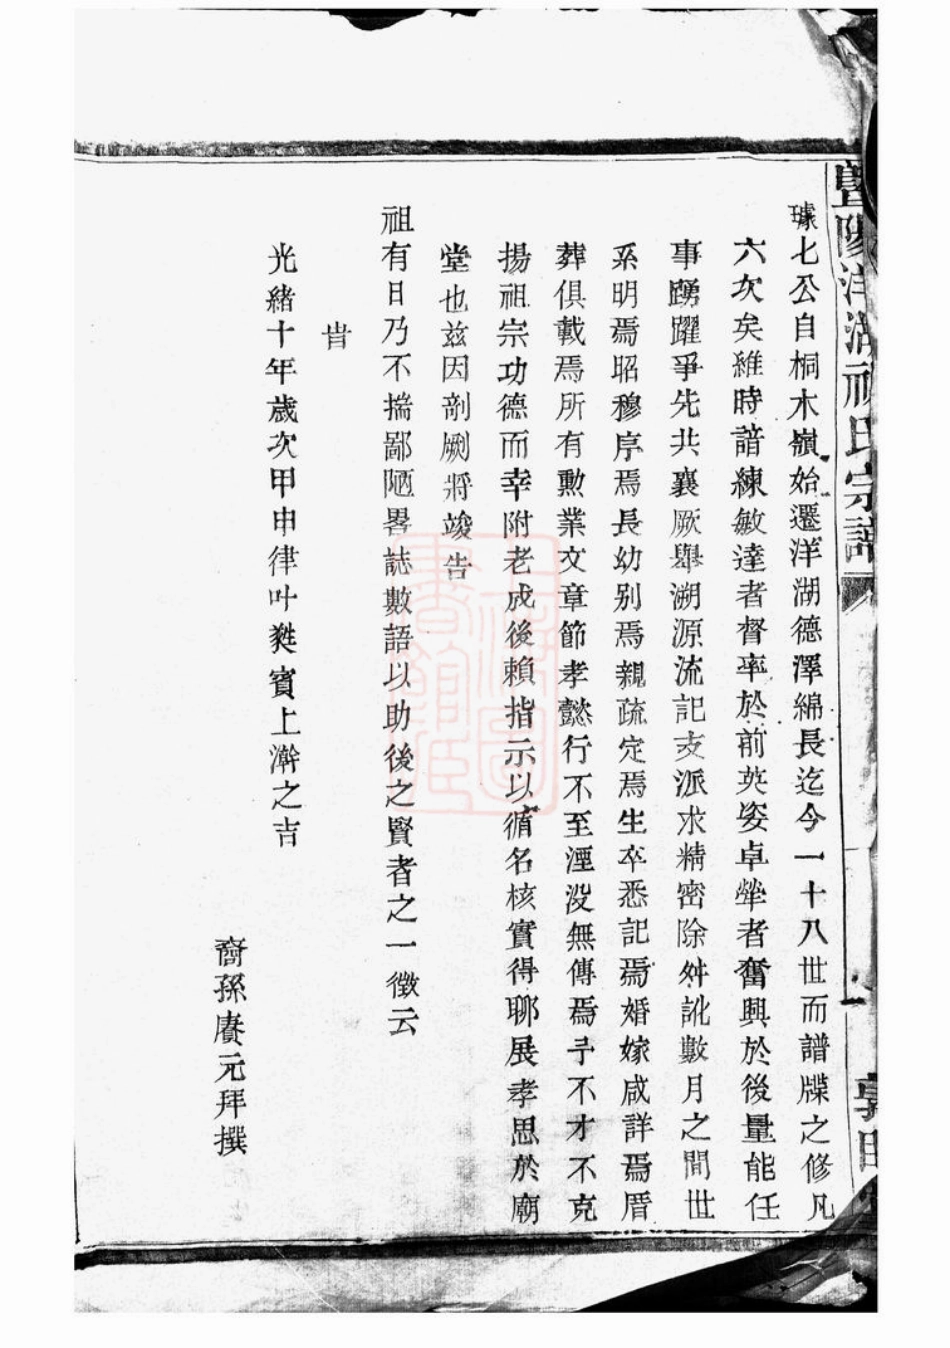 暨陽洋湖祝氏宗譜
璩七公自桐木嶺始遷洋湖德澤綿長迄今一十八世而譜牒之修凡
六次矣維時諳練敏達者督率於前英姿卓犖者奮興於後量能任
事踴躍爭先共襄厥舉溯源流記支派求精密除舛訛數月之間世
系明焉昭穆序焉長幼别焉親疏定焉生卒悉記焉婚嫁咸詳焉厝
葬俱載焉所有勲業文章節孝懿行不至湮没無傳焉予不才不克
揚祖宗功德而幸附老成後賴指示以循名核實得聊展孝思於廟
堂也兹因剞劂將竣告
祖有日乃不揣鄙陋畧誌數語以助後之賢者之一徵云
旹
光緒十年歲次甲申律叶蕤賓上澣之吉
裔孫賡元拜撰